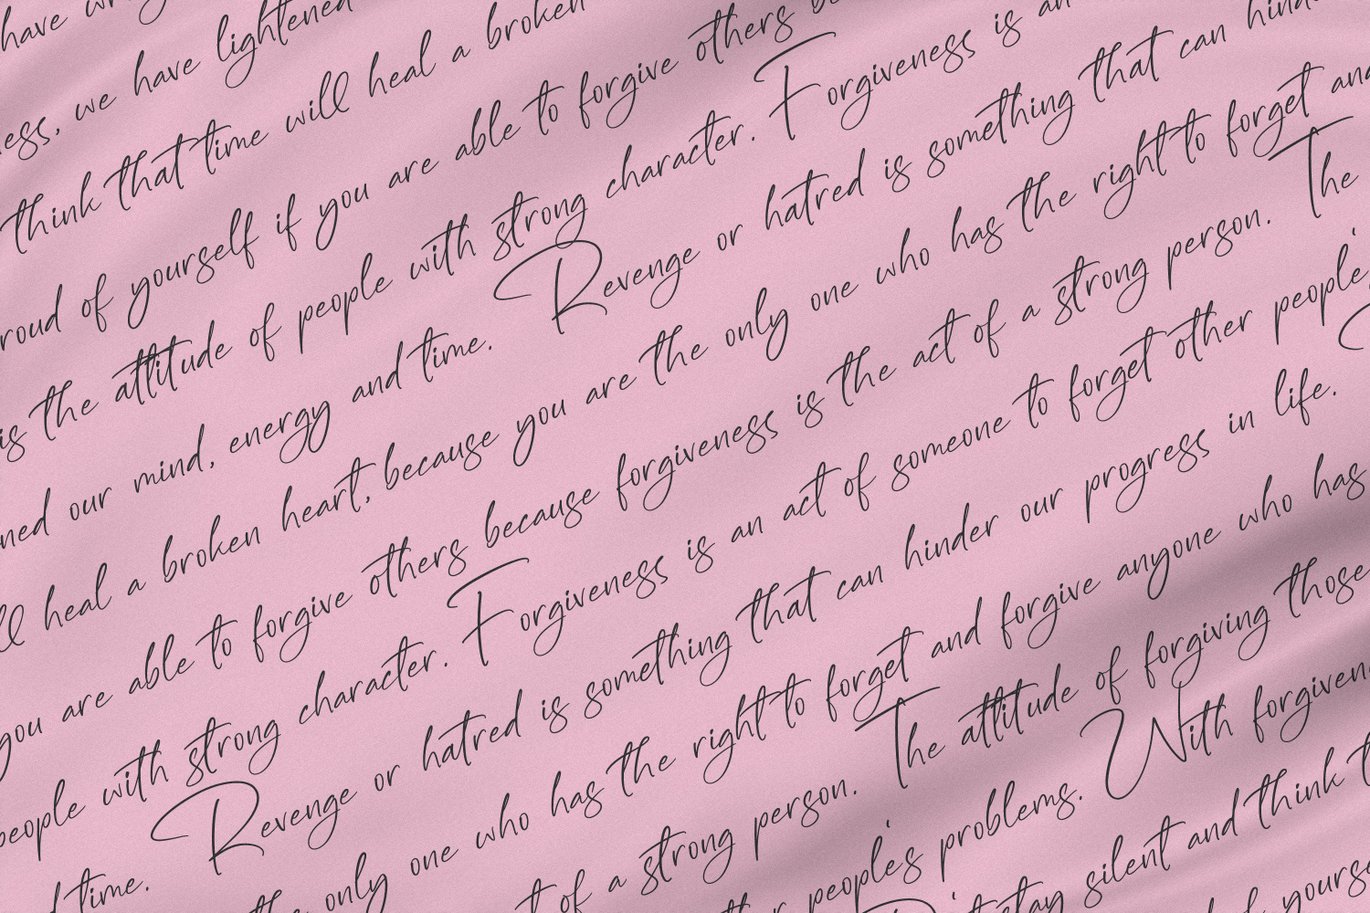 have
ess, we have lightened
think that time will heal a broken
roud of yourself if you are able to forgive others be
is the attitude of people with strong character. Forgiveness is an
ned our mind, energy and time. Revenge or hatred is something that can hinde
ll heal a broken heart, because you are the only one who has the right to forget and
you are able to forgive others because forgiveness is the act of a strong person. The
people with strong character. Forgiveness is an act of someone to forget other people'
d time. Revenge or hatred is something that can hinder our progress in life.
the only one who has the right to forget and forgive anyone who has
t of a strong person. The attitude of forgiving those
people's problems. With forgiven
stay silent and think t
of yourse